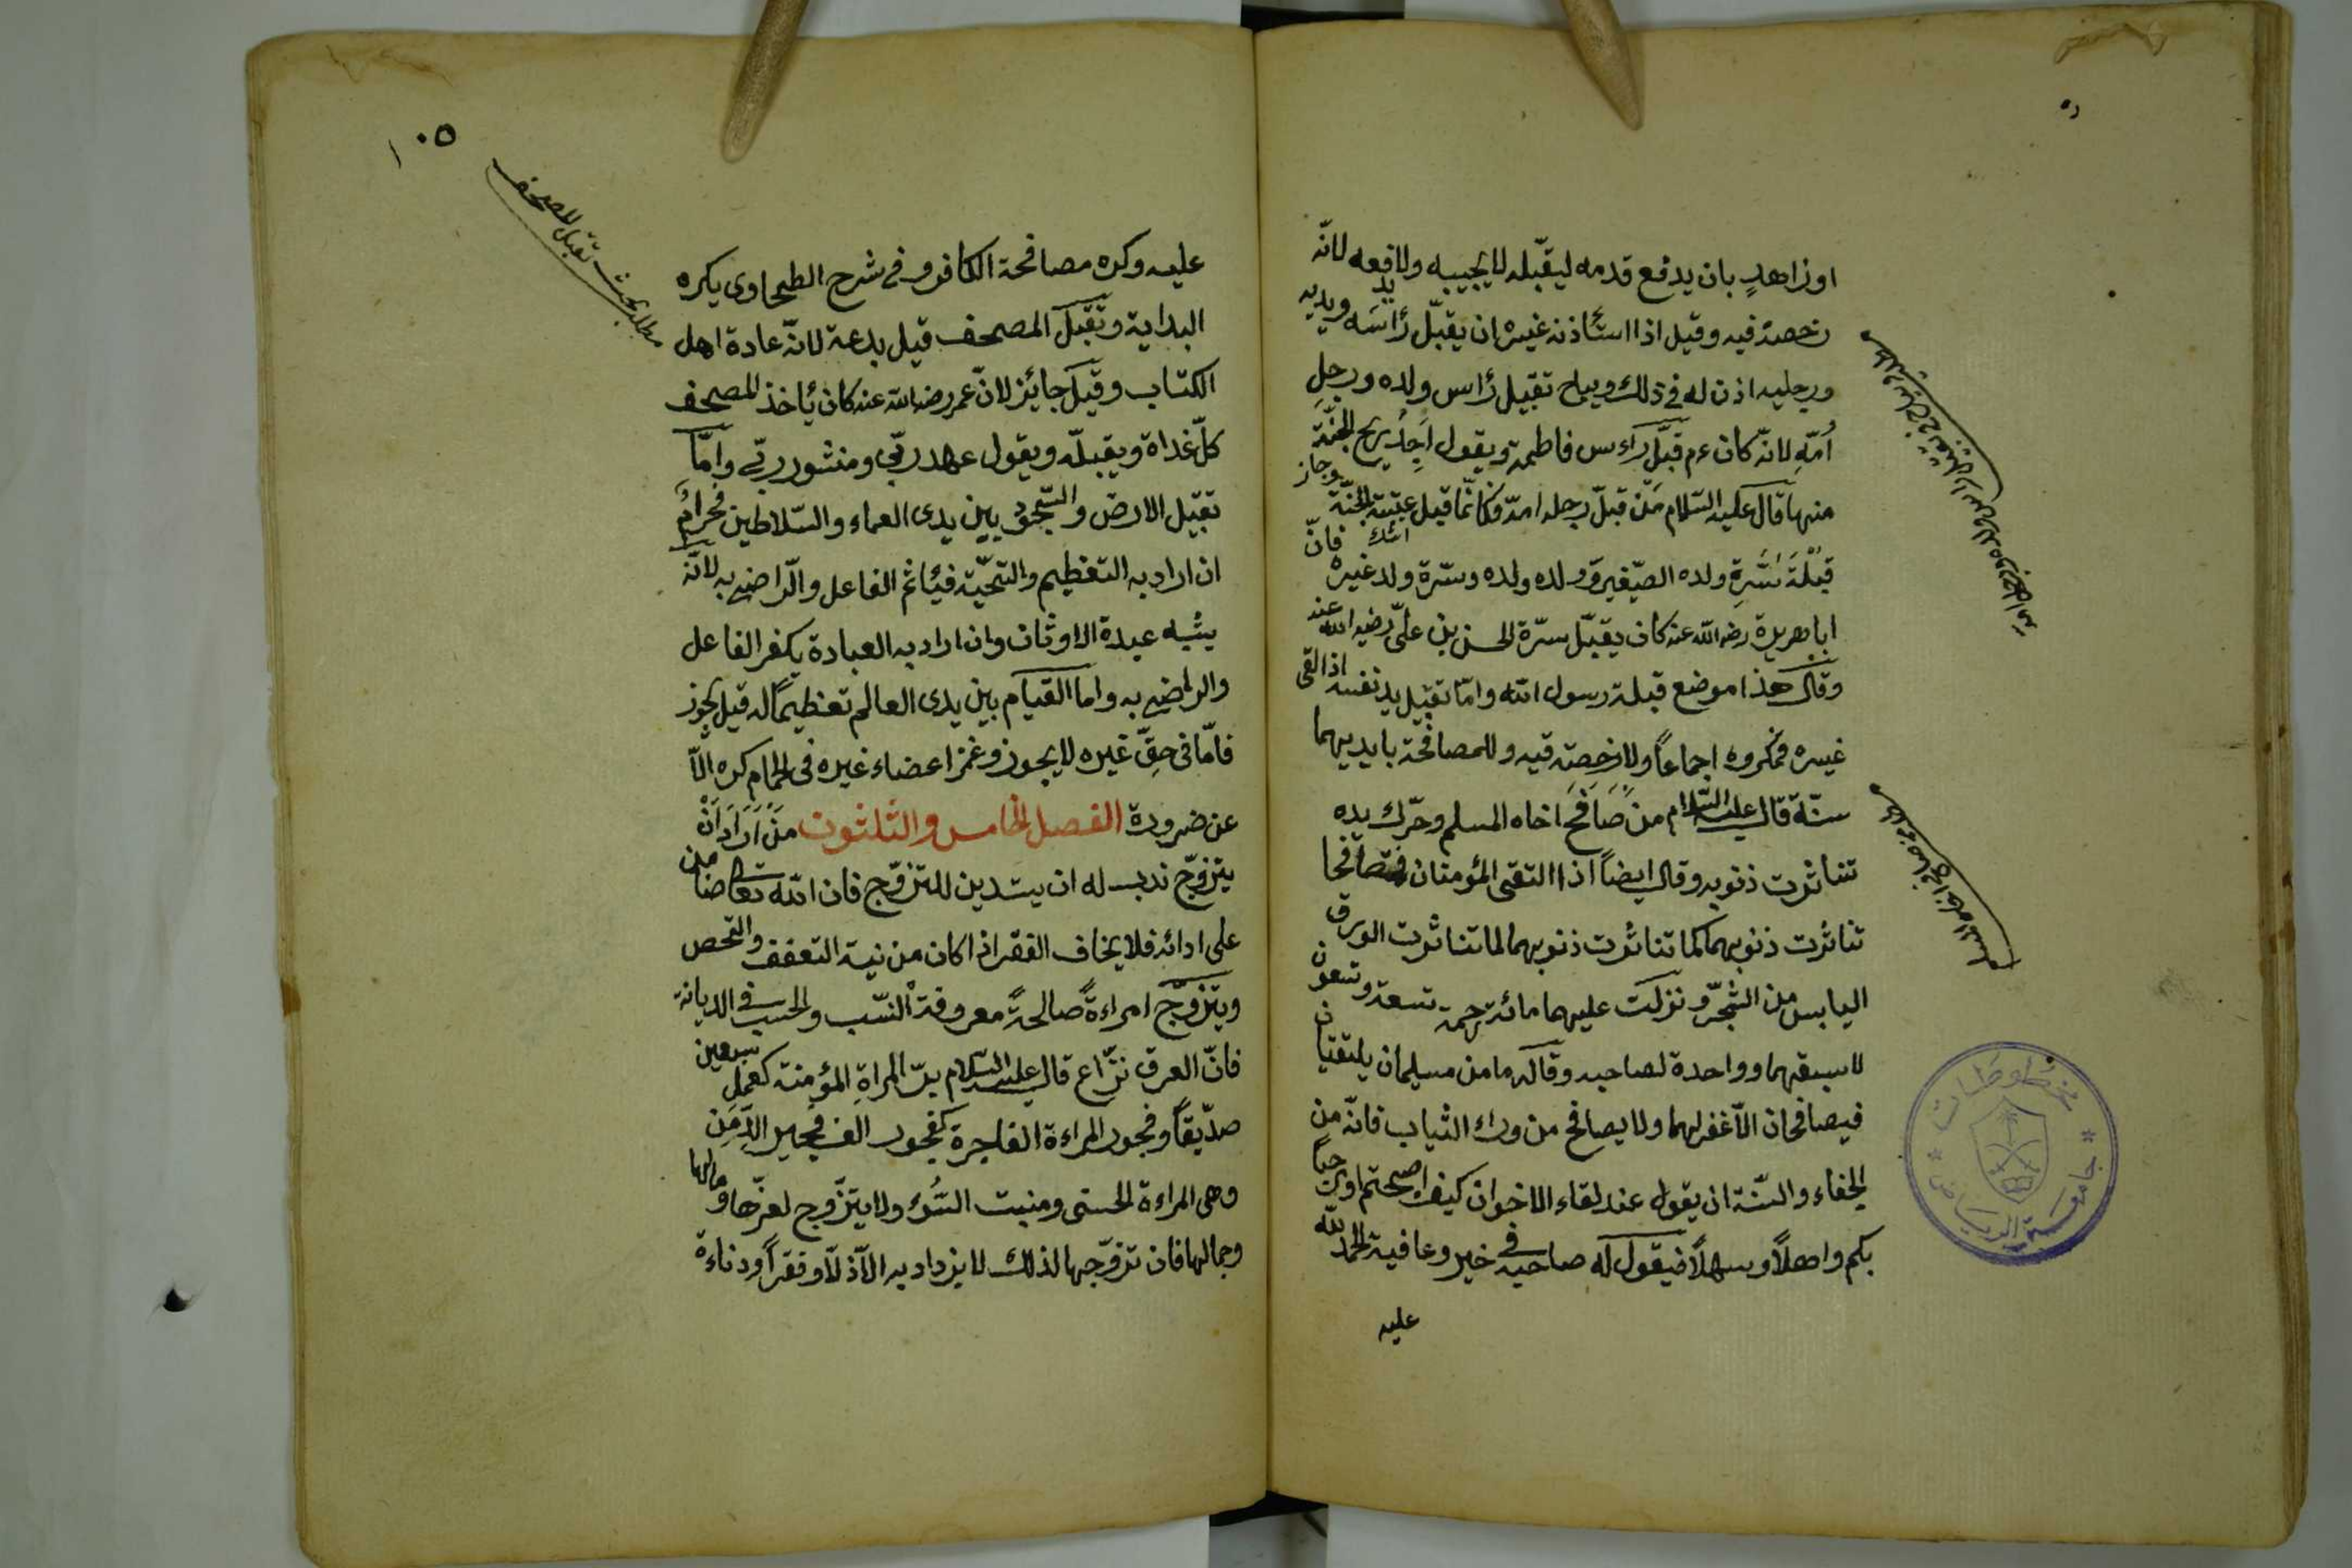 اوزاهدٍ بان يدفع قدمه ليقبّله لا يجيبه ولا فعه لانّه
رخصة فيه وقيل اذا استأذنه غيره ان يقبّل رأسه ويديه
ورجليه اذن له في ذلك ويباح تقبيل رأس ولده ورجلِ
أُمّهِ لانّه كان عم قبّل رأس فاطمة ويقول اَجِدُ ريح الجنّة
منها قال عليه السّلام مَن قبّل رجله امّه فكانّما قبل عتبته الجنّة وجاز
قبْلَةَ سُرّةِ ولده الصّغيرة وولده ولده وسّرة ولد غيره فانّ
ابا هريرة رضه الله عنه كان يقبّل سرّة الحسن بن علىّ رضيه الله عنه
وقال هذا موضع قبلة رسول الله وامّا تقبيل يد نفسه اذا لقى
غيره فمكروه اجماعاً ولا رخصة فيه وللمصافحة بايديهما
سنّة قال عليه السّلام من صَافَحَ اخاه المسلم وحرّك يده
تناثرت ذنوبه وقال ايضاً اذا التقى المؤمنان فتصافحا
تناثرت ذنوبهما كما تناثرت ذنوبهما لما تناثرت الورق
اليابس من الشجرّ ونزلت عليهما مائة رحمة تسعة وتسعون
لاسبقهما وواحدة لصاحبه وقال ما من مسلمان يلتقيان
فيصافحان الّا غفر لهما ولا يصافح من وراء الثياب فانّه من
الجفاء والسّنة ان يقول عند لقاء الاخوان كيف اصبحتم او مرحباً
بكم واهلاً وسهلاً فيقول له صاحبه في خير وعافية الحمد لله
عليه
جامعة الرياض
مخطوطات
١٠٥
مطلب بحث تقبيل المصحف
عليه وكره مصافحة الكافر وفي شرح الطحاوى يكره
البداية وتقبّل المصحف قيل بدعة لانّه عادة اهل
الكتاب وقيل جائز لانّ عمر رضه الله عنه كان يأخذ المصحف
كلّ غداة ويقبّله ويقول عهد ربّي ومنشور ربّي وامّا
تقبيل الارض والسّجود بين يدى العماء والسّلاطين فحرامٌ
ان اراد به التعظيم والتحيّة فيأثم الفاعل والّراضى به لانّه
يشبه عبدة الاوثان وان اراد به العبادة يكفر الفاعل
والراضى به واما القيام بين يدى العالم تعظيماً له قيل يجوز
فامّا فى حقّ غيره لا يجوز وغمز اعضاء غيره فى الحمام كره الّا
عن ضرورة الفصل الخامس والثلثون مَنْ اَرَادَ اَنْ
يتزوّج ندب له ان يستدين للتزوّج فان الله تعالى ضامن
على ادائه فلا يخاف الفقر اذا كان من نية التعفف والتحصن
ويتزوّج امراءةً صالحةً معروفة النسّب والحسب فى الديانة
فانّ العرق نزّاع قال عليه السّلام برّ المراةِ المؤمنة كعمل سبعين
صدّيقاً وفجور المراءة الفاجرة كفجور الف فجير
وهى المراءة الحسنى ومنبت السّوء ولا يتزّوج لعزّها ومالها
وجمالها فان تزوّجها لذلك لا يزداد به الّا ذلاً وفقراً ودناءة